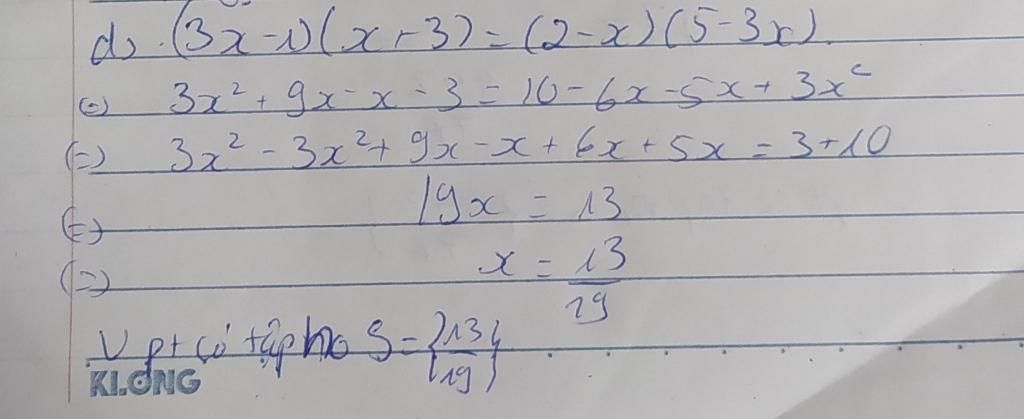 d) (3x-1)(x+3) = (2-x)(5-3x)
(=) 3x² + 9x - x - 3 = 10 - 6x - 5x + 3x²
(=) 3x² - 3x² + 9x - x + 6x + 5x = 3 + 10
(=) 19x = 13
(=) x = 13/19
V pt có tập no S = {13/19}
KLONG